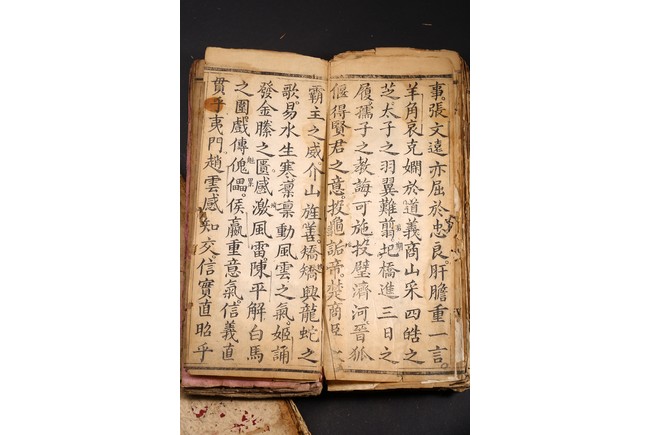 事。張文遠亦屈於忠良肝膽重一言。
羊角哀克嫻於道義商山采四皓之
芝。太子之羽翼難翦圯橋進三日之
履。孺子之教誨可施投璧濟河。晉狐
偃得賢君之意。投龜詬帝。楚商臣
霸主之威介山旌善。矯矯興龍蛇之
歌。易水生寒。凜凜動風雲之氣。姬誦
發金縢之匱感激風雷陳平解白馬
之圍戲傳傀儡。侯嬴重意氣。信義直
貫乎夷門趙雲感知交。信實直昭乎